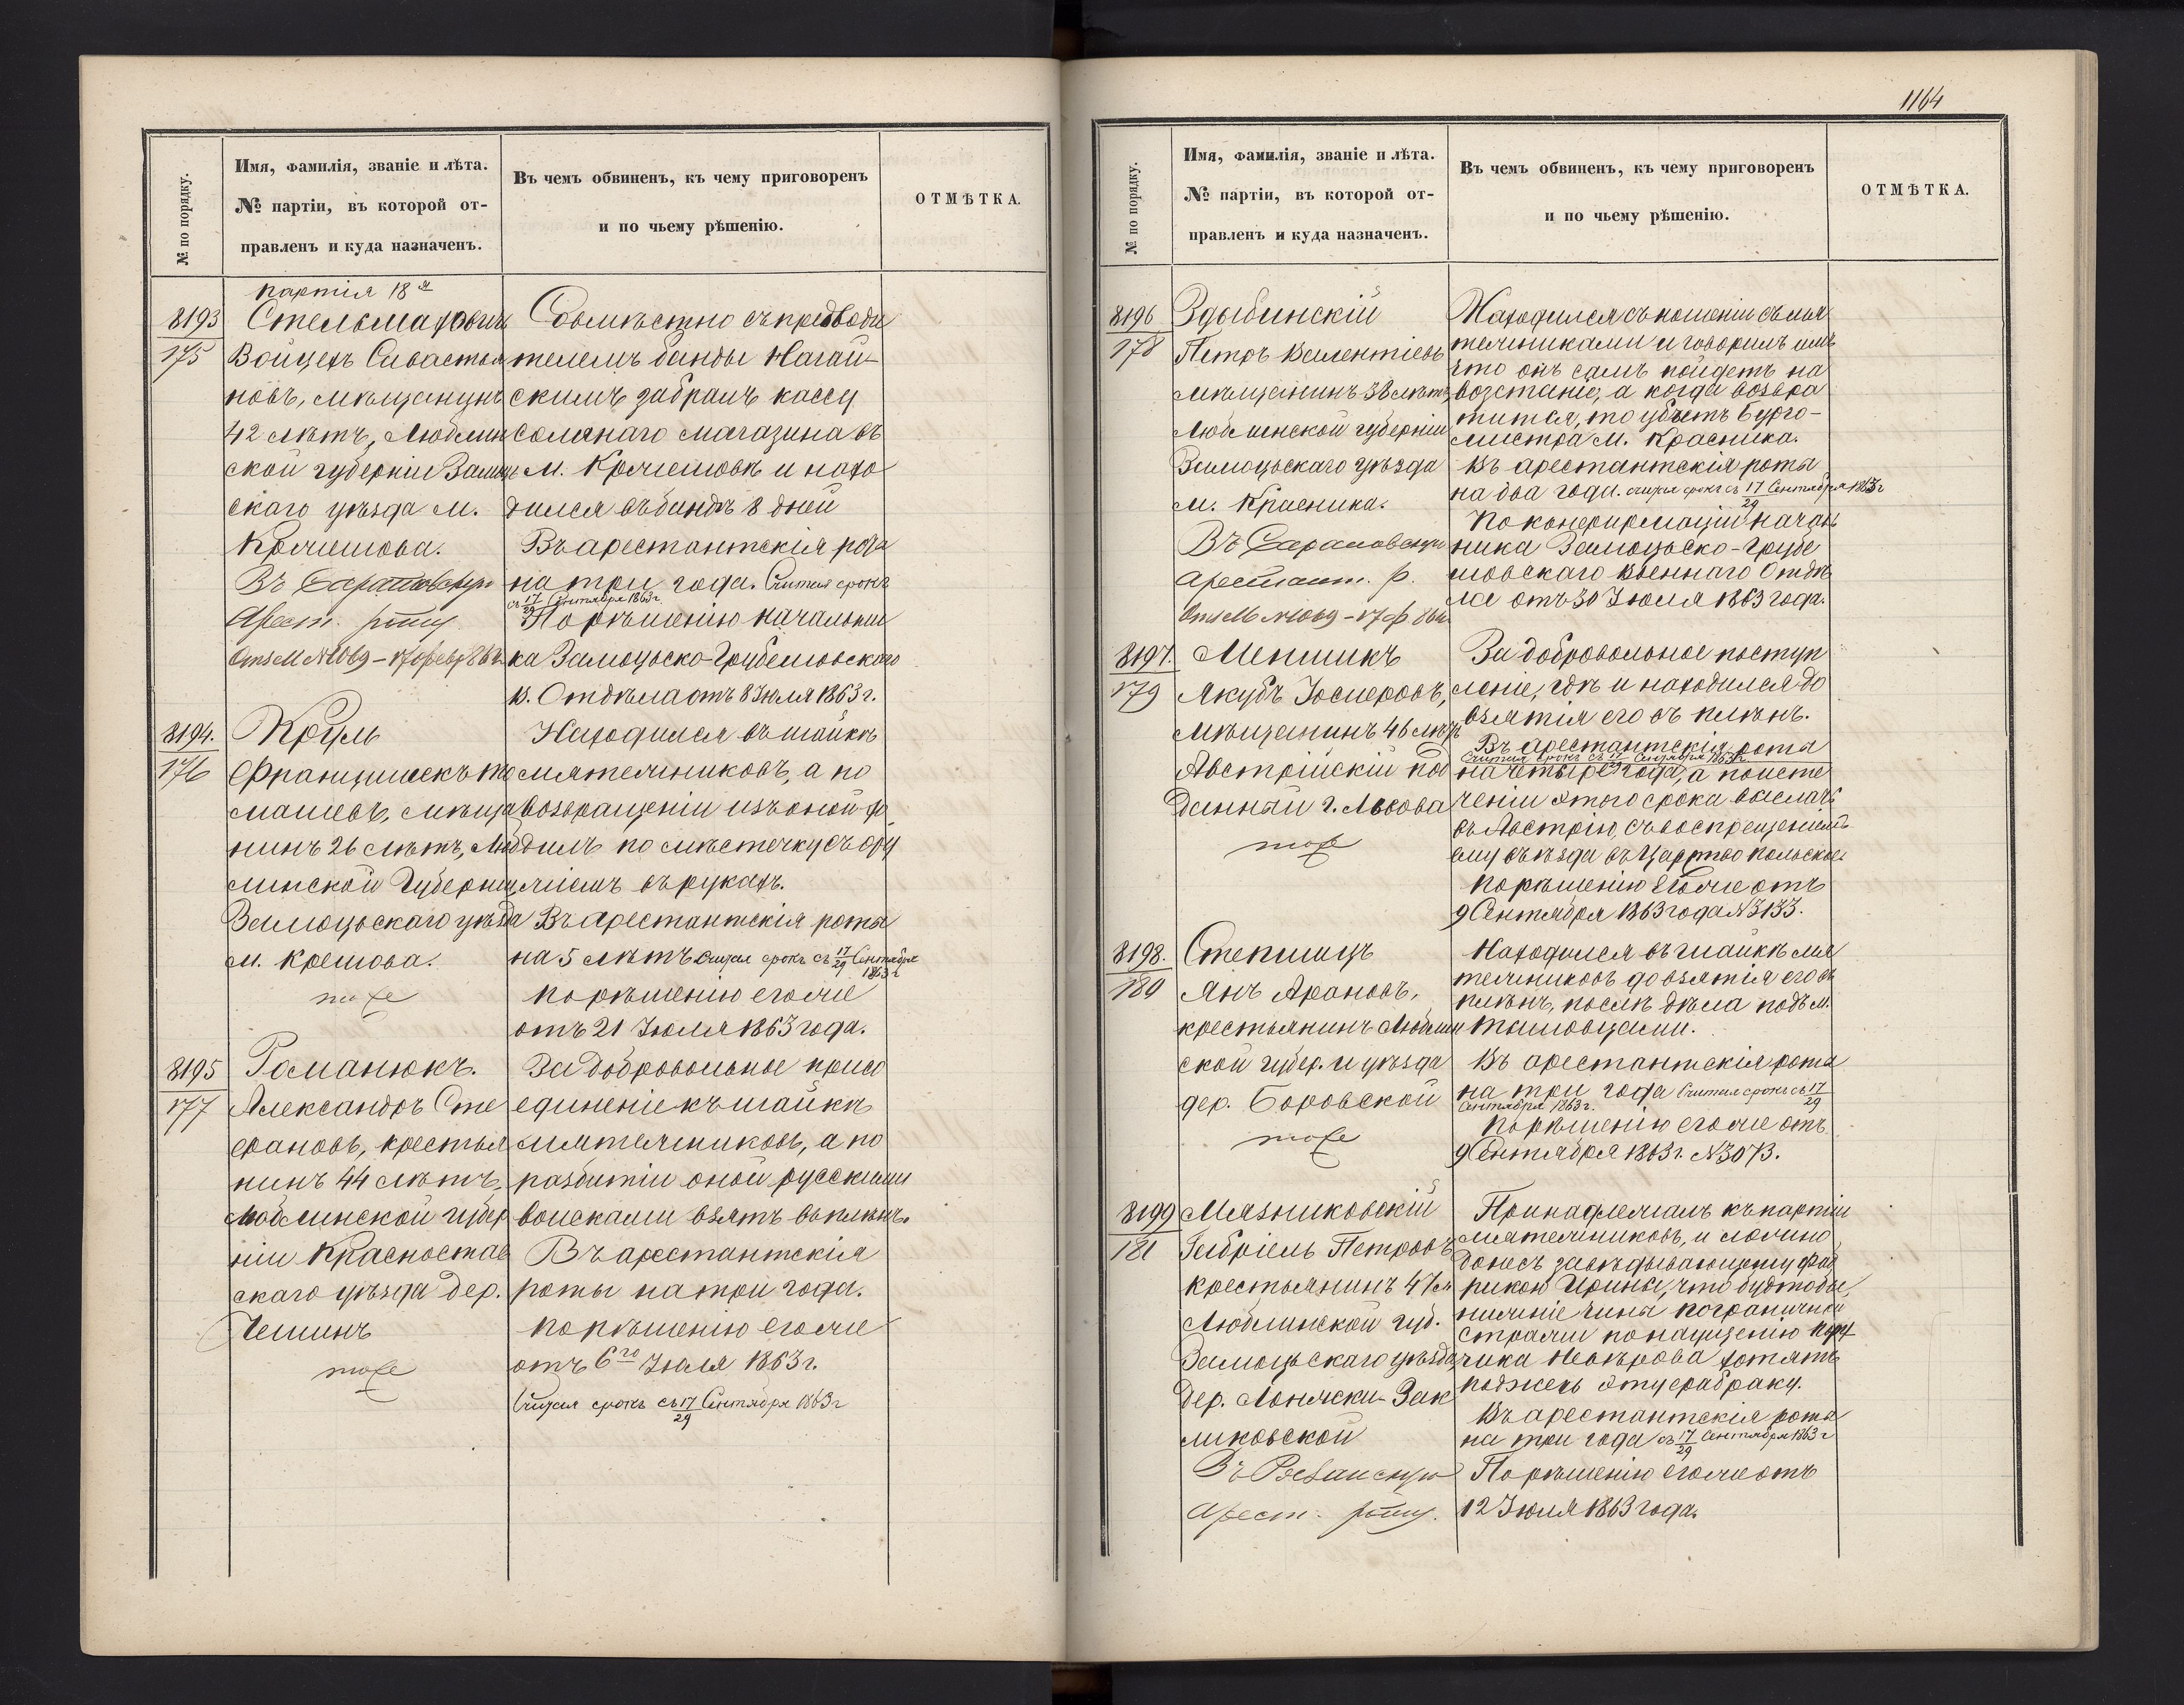 № по порядку.
Имя, фамилія, званіе и лѣта.
№ партіи, въ которой от-
правленъ и куда назначенъ.
Въ чемъ обвиненъ, къ чему приговоренъ
и по чьему рѣшенію.
ОТМѢТКА.
партія 18я
8193
175
Стельмахович
Войцехъ Сивастья
новъ, мѣщанинъ
42 лѣтъ, Люблин
ской губерніи Замоц
скаго уѣзда м.
Крешова.
Въ Саратовскую
Арест. роту
Отз М №1069 – 17 февр 864
Совмѣстно съ предводи
телемъ банды Нагай-
скимъ забралъ кассу
Солянаго магазина въ
м. Кржешовѣ и нахо
дился въ бандѣ 8 дней
Въ арестантскія роты
на три года. Считая срокъ
съ 17/29 Сентября 1863 г.
По рѣшенію начальни
ка Замоцьско-Грубешовского
В. Отдѣла отъ 8 Іюля 1863 г.
8194.
176
Круль
Францишекъ То
машевъ, мѣща
нинъ 26 лѣтъ, Люб
линской Губерніи,
Замоцьскаго уѣзда
м. Крешова.
тоже
Находился въ шайкѣ
мятежниковъ, а по
возвращеніи изъ оной хо
дилъ по мѣстечку съ ору
жіемъ въ рукахъ.
Въ Арестантскія роты
на 5 лѣтъ Считая срокъ съ 17/29 Сентября
1863 г
по рѣшенію егоже
отъ 21 Іюля 1863 года.
8195
177
Романюкъ.
Александръ Сте
фановъ, крестья
нинъ 44 лѣтъ,
Люблинской губер
ніи Красностав
скаго уѣзда дер.
Чешинъ
тоже
За добровольное присо
единеніе къ шайкѣ
мятежниковъ, а по
разбитіи оной русскими
войсками взятъ въ плѣнъ.
Въ арестантскія
роты на три года.
по рѣшенію егоже
отъ 6го Іюля 1863 г.
Считая срокъ съ 17/29 Сентября 1863 г
1164
№ по порядку.
Имя, фамилія, званіе и лѣта.
№ партіи, въ которой от-
правленъ и куда назначенъ.
Въ чемъ обвиненъ, къ чему приговоренъ
и по чьему рѣшенію.
ОТМѢТКА.
8196
178
Здыбинскій
Петръ Валентіевъ
мѣщанинъ 38 лѣтъ,
Люблинской губерніи
Замоцьскаго уѣзда
м. Красника.
Въ Саратовскую
Арестант. р.
Отз М №1069 – 17 ф 864
Находился въ ношеніи съ мя
тежниками и говорилъ имъ
что онъ самъ пойдетъ на
возстаніе, а когда возвра
тится, то убьетъ Бурго-
мистра м. Красника.
Въ арестантскія роты
на два года. считая срокъ съ 17/29 Сентября 1863 г
По конфирмаціи началь
ника Замоцьско-Грубе
шовскаго военнаго Отдѣ
ла отъ 30 Іюля 1863 года.
8197.
179
Мепшикъ
Якубъ Іосиеровъ,
мѣщанинъ 46 лѣтъ
Австрійскій под
данный г. Львова
тоже
За добровольное поступ
леніе, гдѣ и находился до
взятія его въ плѣнъ.
Въ арестантскія роты
Считая срокъ съ 17/29 Сентября 1863 г.
на четыре года, а по исте
ченіи этого срока выслать
въ Австрію, съ воспрещеніемъ
ему въѣзда въ Царство Польское.
По рѣшенію Егоже отъ
9 Сентября 1863 года №3133.
8198.
180
Степшицъ
Янъ Арановъ,
крестьянинъ Люблин
ской губер. и уѣзда
дер. Боровской
тоже
Находился въ шайкѣ мя
тежниковъ до взятія его въ
плѣнъ, послѣ дѣла подъ м.
Томовцами.
Въ арестантскія роты
на три года Считая срокъ съ 17/29
Сентября 1863 г.
По рѣшенію егоже отъ
9 Сентября 1863 г. №3073.
8199
181
Мязниковскій
Габріель Петровъ
крестьянинъ 47 л
Люблинской губ.
Замоцьскаго уѣзда,
дер. Лончски-Зак
ликовской
Въ Рязанскую
Арест. роту.
Принадлежалъ къ партіи
мятежниковъ, и ложно
донесъ завѣдывающему фаб
рикой Ирины, что будтобы,
нижніе чины пограничной
стражи по наущенію Пору
чика Невѣрова хотятъ
поджечь эту фабрику.
Въ арестантскія роты
на три года съ 17/29 Сентября 1863 г
По рѣшенію егоже отъ
12 Іюля 1863 года.